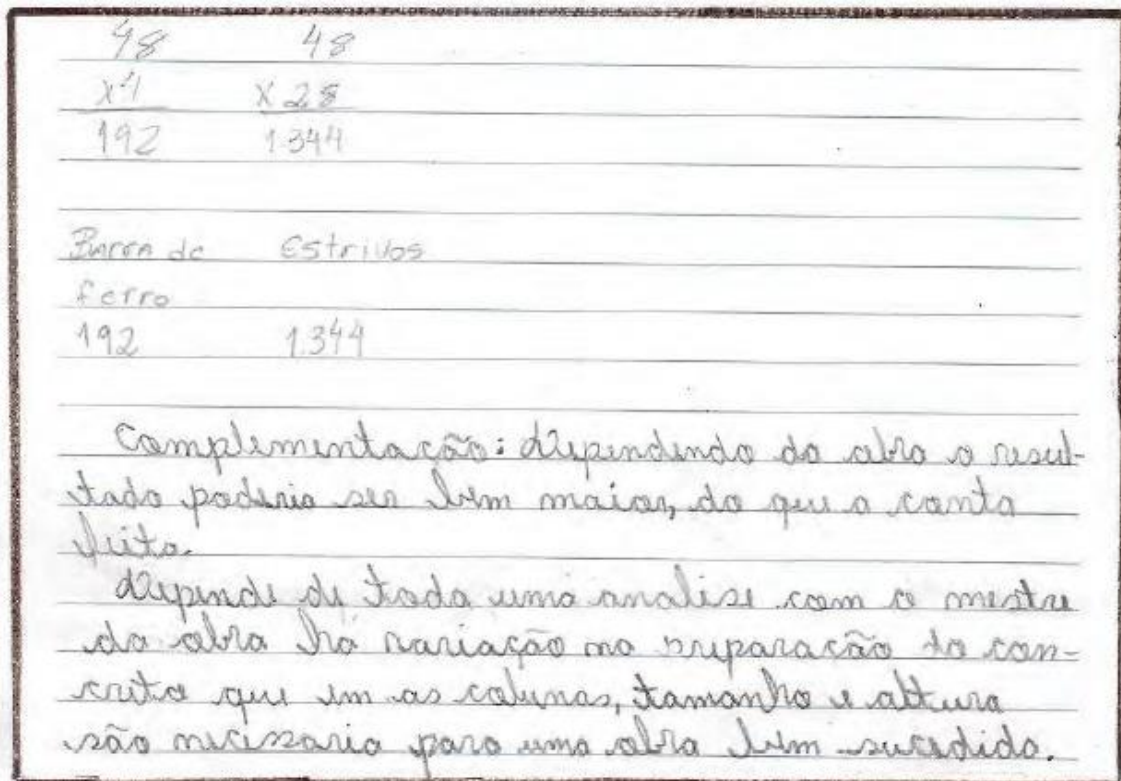 48 48
x4 x 28
192 1.344
Barra de Estrivos
ferro
192 1.344
Complementação: Dependendo da obra o resul-
tado poderia ser bem maior, do que a conta
feita.
Depende de toda uma analise com o mestre
da obra há variação na preparação do con-
creto que em as colunas, tamanho e altura
são necessaria para uma obra bem sucedida.